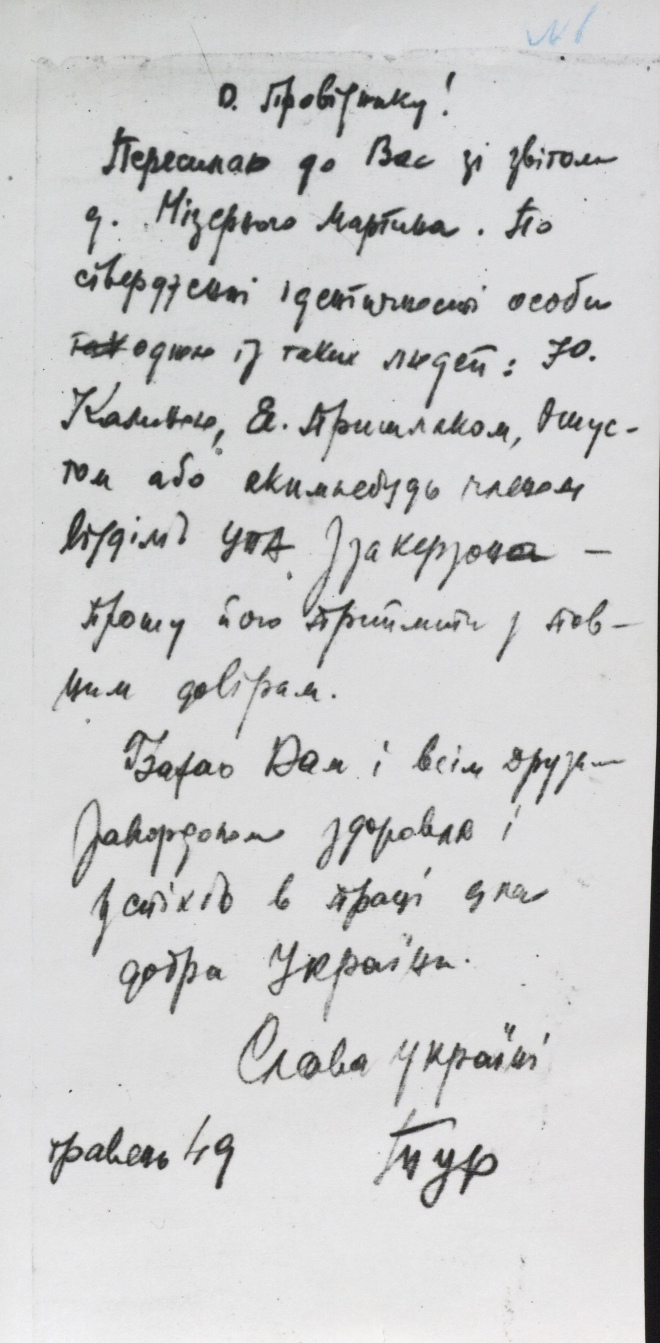 № 6
Д. Провіднику!
Пересилаю до Вас зі звітом
д. Мізерного Мартина. По
ствердженні ідентичности особи
одною із таких людей: Ю.
Є. Пришляком,
том або якимнебудь членом
відділів УПА Ззакерзона —
прошу його прийняти з пов-
ним довірям.
Бажаю Вам і всім друзям
Закордоном здоровля і
успіхів в праці для
добра України.
Слава Україні
травень 49 Тур